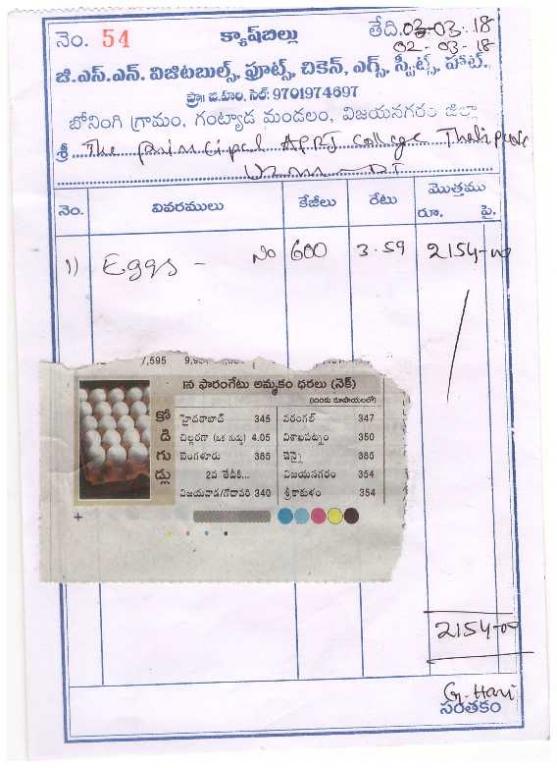 నెం. 54 క్యాష్‌బిల్లు తేది. 03-03-18
02-03-18
జి.ఎస్.ఎన్. విజిటబుల్స్, ఫ్రూట్స్, చికెన్, ఎగ్స్, స్వీట్స్, హాట్.
ప్రొ॥ జి.హరి, సెల్: 9701974697
బోనంగి గ్రామం, గంట్యాడ మండలం, విజయనగరం జిల్లా
శ్రీ The Principal APRJ College
నెం. వివరములు కేజీలు రేటు మొత్తము
రూ. పై.
1) Eggs - No 600 3.59 2154-00
7,595
న ఫారంగేటు అమ్మకం ధరలు (నెక్)
(వందకు రూపాయలలో)
కోడిగుడ్లు
హైదరాబాద్ 345 వరంగల్ 347
చిల్లరగా (ఒక గుడ్డు) 4.05 విశాఖపట్నం 350
బెంగళూరు 385 చెన్నై 385
2వ తేదీకి... విజయనగరం 354
విజయవాడ/గోదావరి 340 శ్రీకాకుళం 354
2154-00
G. Hari
సంతకం